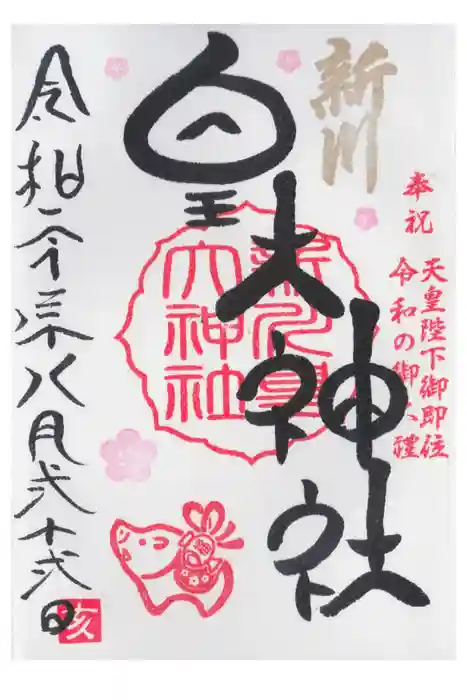 奉祝
天皇陛下御即位
令和の御大禮
新川
皇大神社
新川皇
大神社
令和元年八月弐十弐日
亥